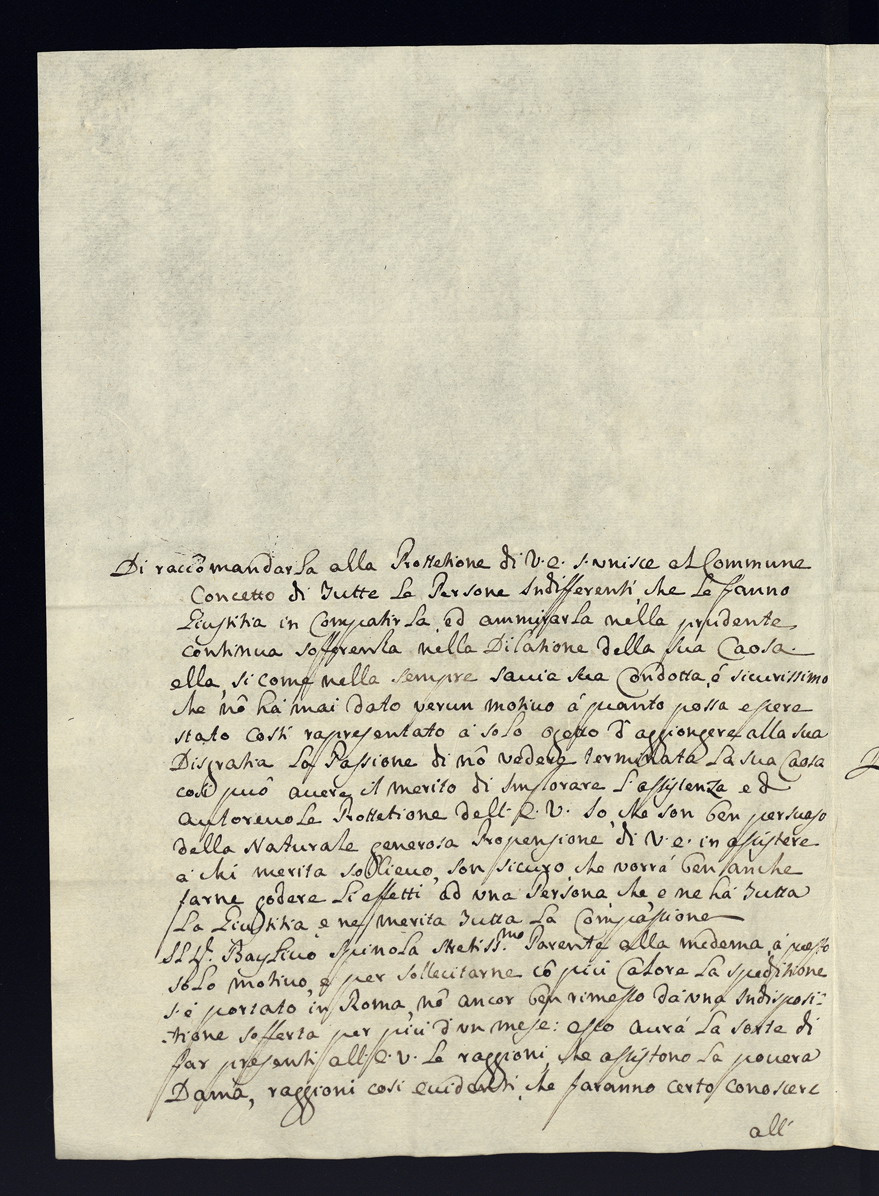 Di raccõmandarla alla Prottetione di V. E. s'unisce al Commune
Concetto di Tutte Le Persone Indifferenti, che Le fanno
Giustitia in Compatirla, ed ammirarla nella prudente,
continua sofferenza nella Dilatione della sua Caosa.
ella, si come nella sempre savia sua Condotta, é sicurissimo
che nõ há mai dato verun motivo á quanto possa essere
stato costí rapresentato á solo ogetto d'aggiongere alla sua
Disgratia La Passione di nõ vedere terminata La sua Caosa
cosí puó avere il merito di Implorare L'assistenza e d
autorevole Prottetione dell'E. V. Io, che son ben persuaso
della Naturale generosa Propensione di V. E. in assistere
á chi merita sollievo, son sicuro, che vorrá ben anche
farne godere Li effetti ad una Persona, che, e ne há Tutta
La Giustitia, e ne merita Tutta La Compassione
Il Sr. Baylivo Spinola stretiss.mo Parente alla medema, á questo
solo motivo, e per sollecitarne cõ piú Calore La speditione
s'é portato in Roma, nõ ancor ben rimesso da una Indisposi-
tione sofferta per piú d'un mese: esso avrá La sorte di
far presenti all'E. V. Le raggioni, che assistono La povera
Dama, raggioni cosí evidenti, che faranno certo conoscere
all'